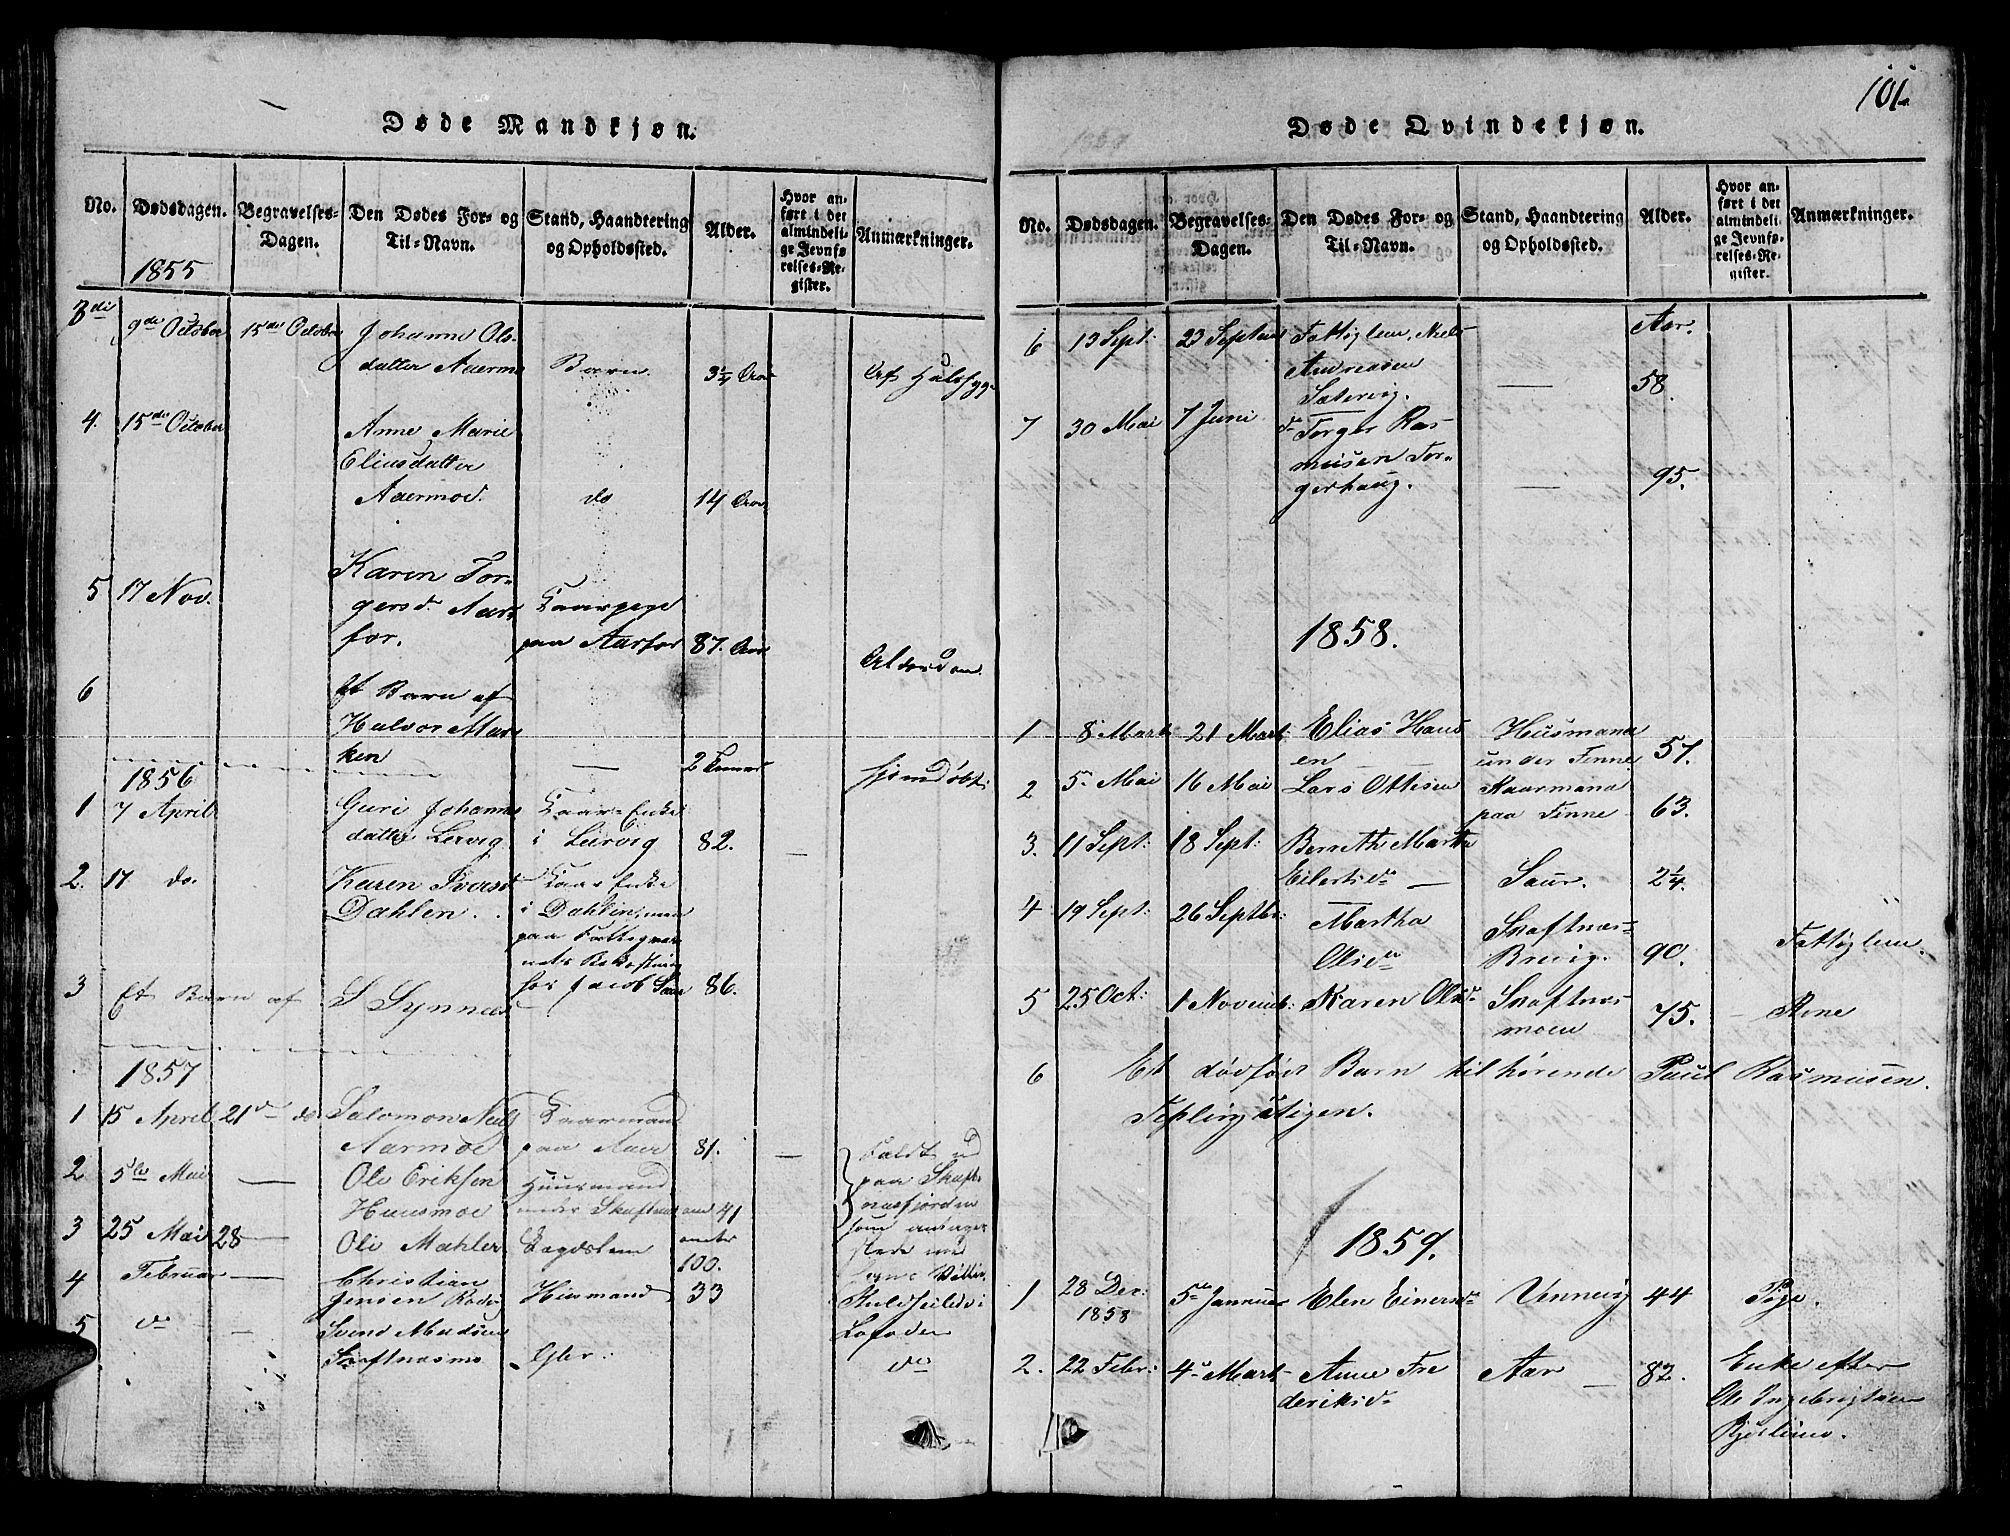 101.
Døde Mandkjøn.
No. Dødsdagen. Begravelses-Dagen. Den Dødes For- og Til-Navn. Stand, Haandtering og Opholdssted. Alder. Hvor anført i det almindelige Jevnførelses-Register. Anmærkninger.
1855
3di 9de October 15de October Johanne Ols-
datter Aarmo Barn 3¼ Aar Af Halssyge
4. 15de October Anne Marie
Eliasdatter
Aarmoe. do 14 Aar
5 17 Nov. Karen Tor-
gersd. Aar-
for. Kaarpige
paa Aarfor 87. Aar Alderdom
6 Et Barn af
Halvor Mar-
ken — 2 Timer hjemdøbt
1856
1 7 April Guri Johannes
datter Lervig Kaar-Enke
i Leirvig 82. —
2. 17 do. Karen Iversd.
Dahlen. Kaar Enke
i Dahlen, men
paa Fattigvæs-
nets Bekostning
hos Jacob Saur 86.
3 Et Barn af S Synnes
1857
1 15 April 21de do Salomon Niels
Aarmoe Kaarmand
paa Aaer 81. —
2 5te Mai — Ole Eriksen
Huusmoe Huusmand
under Skaftnæs 41 Faldt ud
paa Skaft-
næsfjorden
som antages
3 25 Mai 28 — Ole Mahler Lægdslem 100.
4 Februar — Christian
Jensen Husmand 33 Kuldseiledei
Lofoden
5 do — Svend
Skaftnæsmo do
Døde Qvindekjøn.
No. Dødsdagen. Begravelses-Dagen. Den Dødes For- og Til-Navn. Stand, Haandtering og Opholdssted. Alder. Hvor anført i det almindelige Jevnførelses-Register. Anmærkninger.
6 13 Sept: 23 Septemb Fattiglem, Niels
Andreasen
Sætervig. — Aar.
58.
7 30 Mai 7 Juni Torger Ras-
musen Tor-
gerhaug. — 95.
1858.
1 8 Mart 21 Mart: Elias Hans
en — Husmand
under Finne 57.
2 5 Mai 16 Mai Lars Ottesen Kaarmand
paa Finne 63.
3. 11 Sept: 18 Sept: Bereth Marta
Eilertsdr — Saur. 2¼.
4 19 Sept: 26 Septbr: Martha
Olsdr Skaftnæs-
Brevig. 90. Fattiglem.
5 25 Oct: 1 Novemb: Karen Olsdr Skaftnæs
moen 75. — Kone
6 Et dødfødt Barn tilhørende Paul Rasmusen.
Teplingstigen.
1859.
1 28 Dec:
1858 5te Januar Elen Einersdr Vennevig 44 Pige.
2. 22 Febr: 4de Mart Anne Fre
deriksdr Aar — 82. Enke efter
Ole Ingebrigtsen